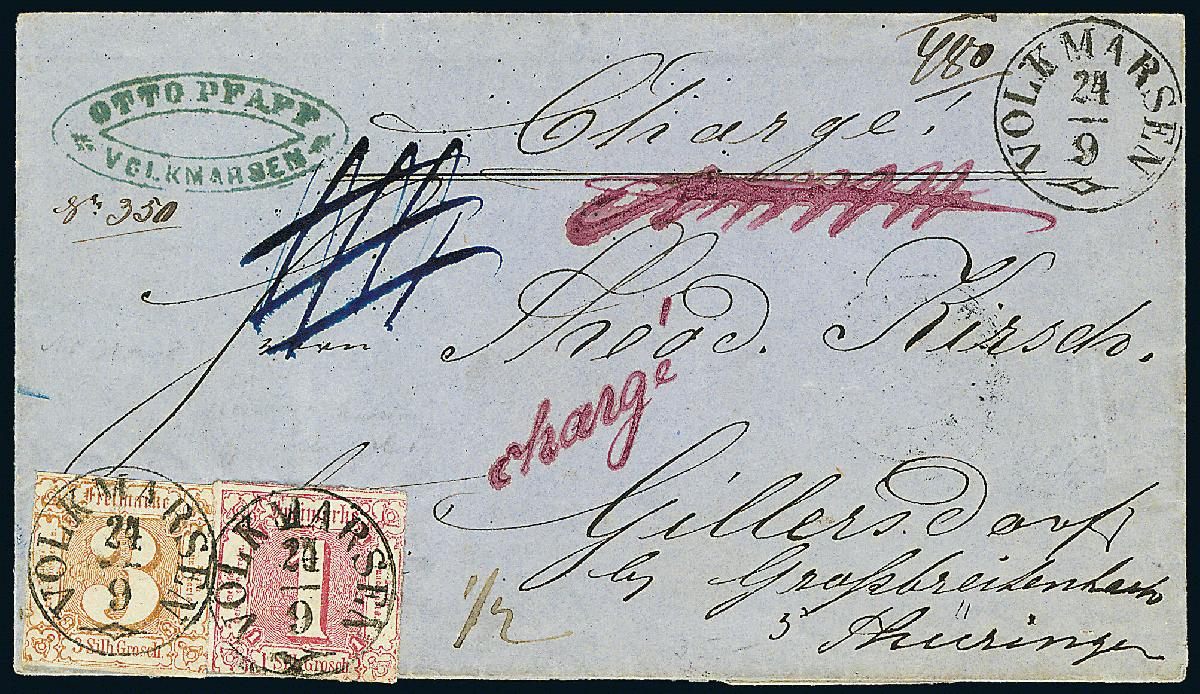 OTTO PFAFF
VOLKMARSEN
N: 350
480
VOLKMARSEN
24
9
Chargé
Herrn
Theod. Kirsch.
chargé
Gillersdorf
by Großbreitenbach
Thüringen
1/2
Freimarke
3
3 Silb. Grosch
VOLKMARSEN
24
9
Freimarke
1
1 Silb. Grosch
VOLKMARSEN
24
9